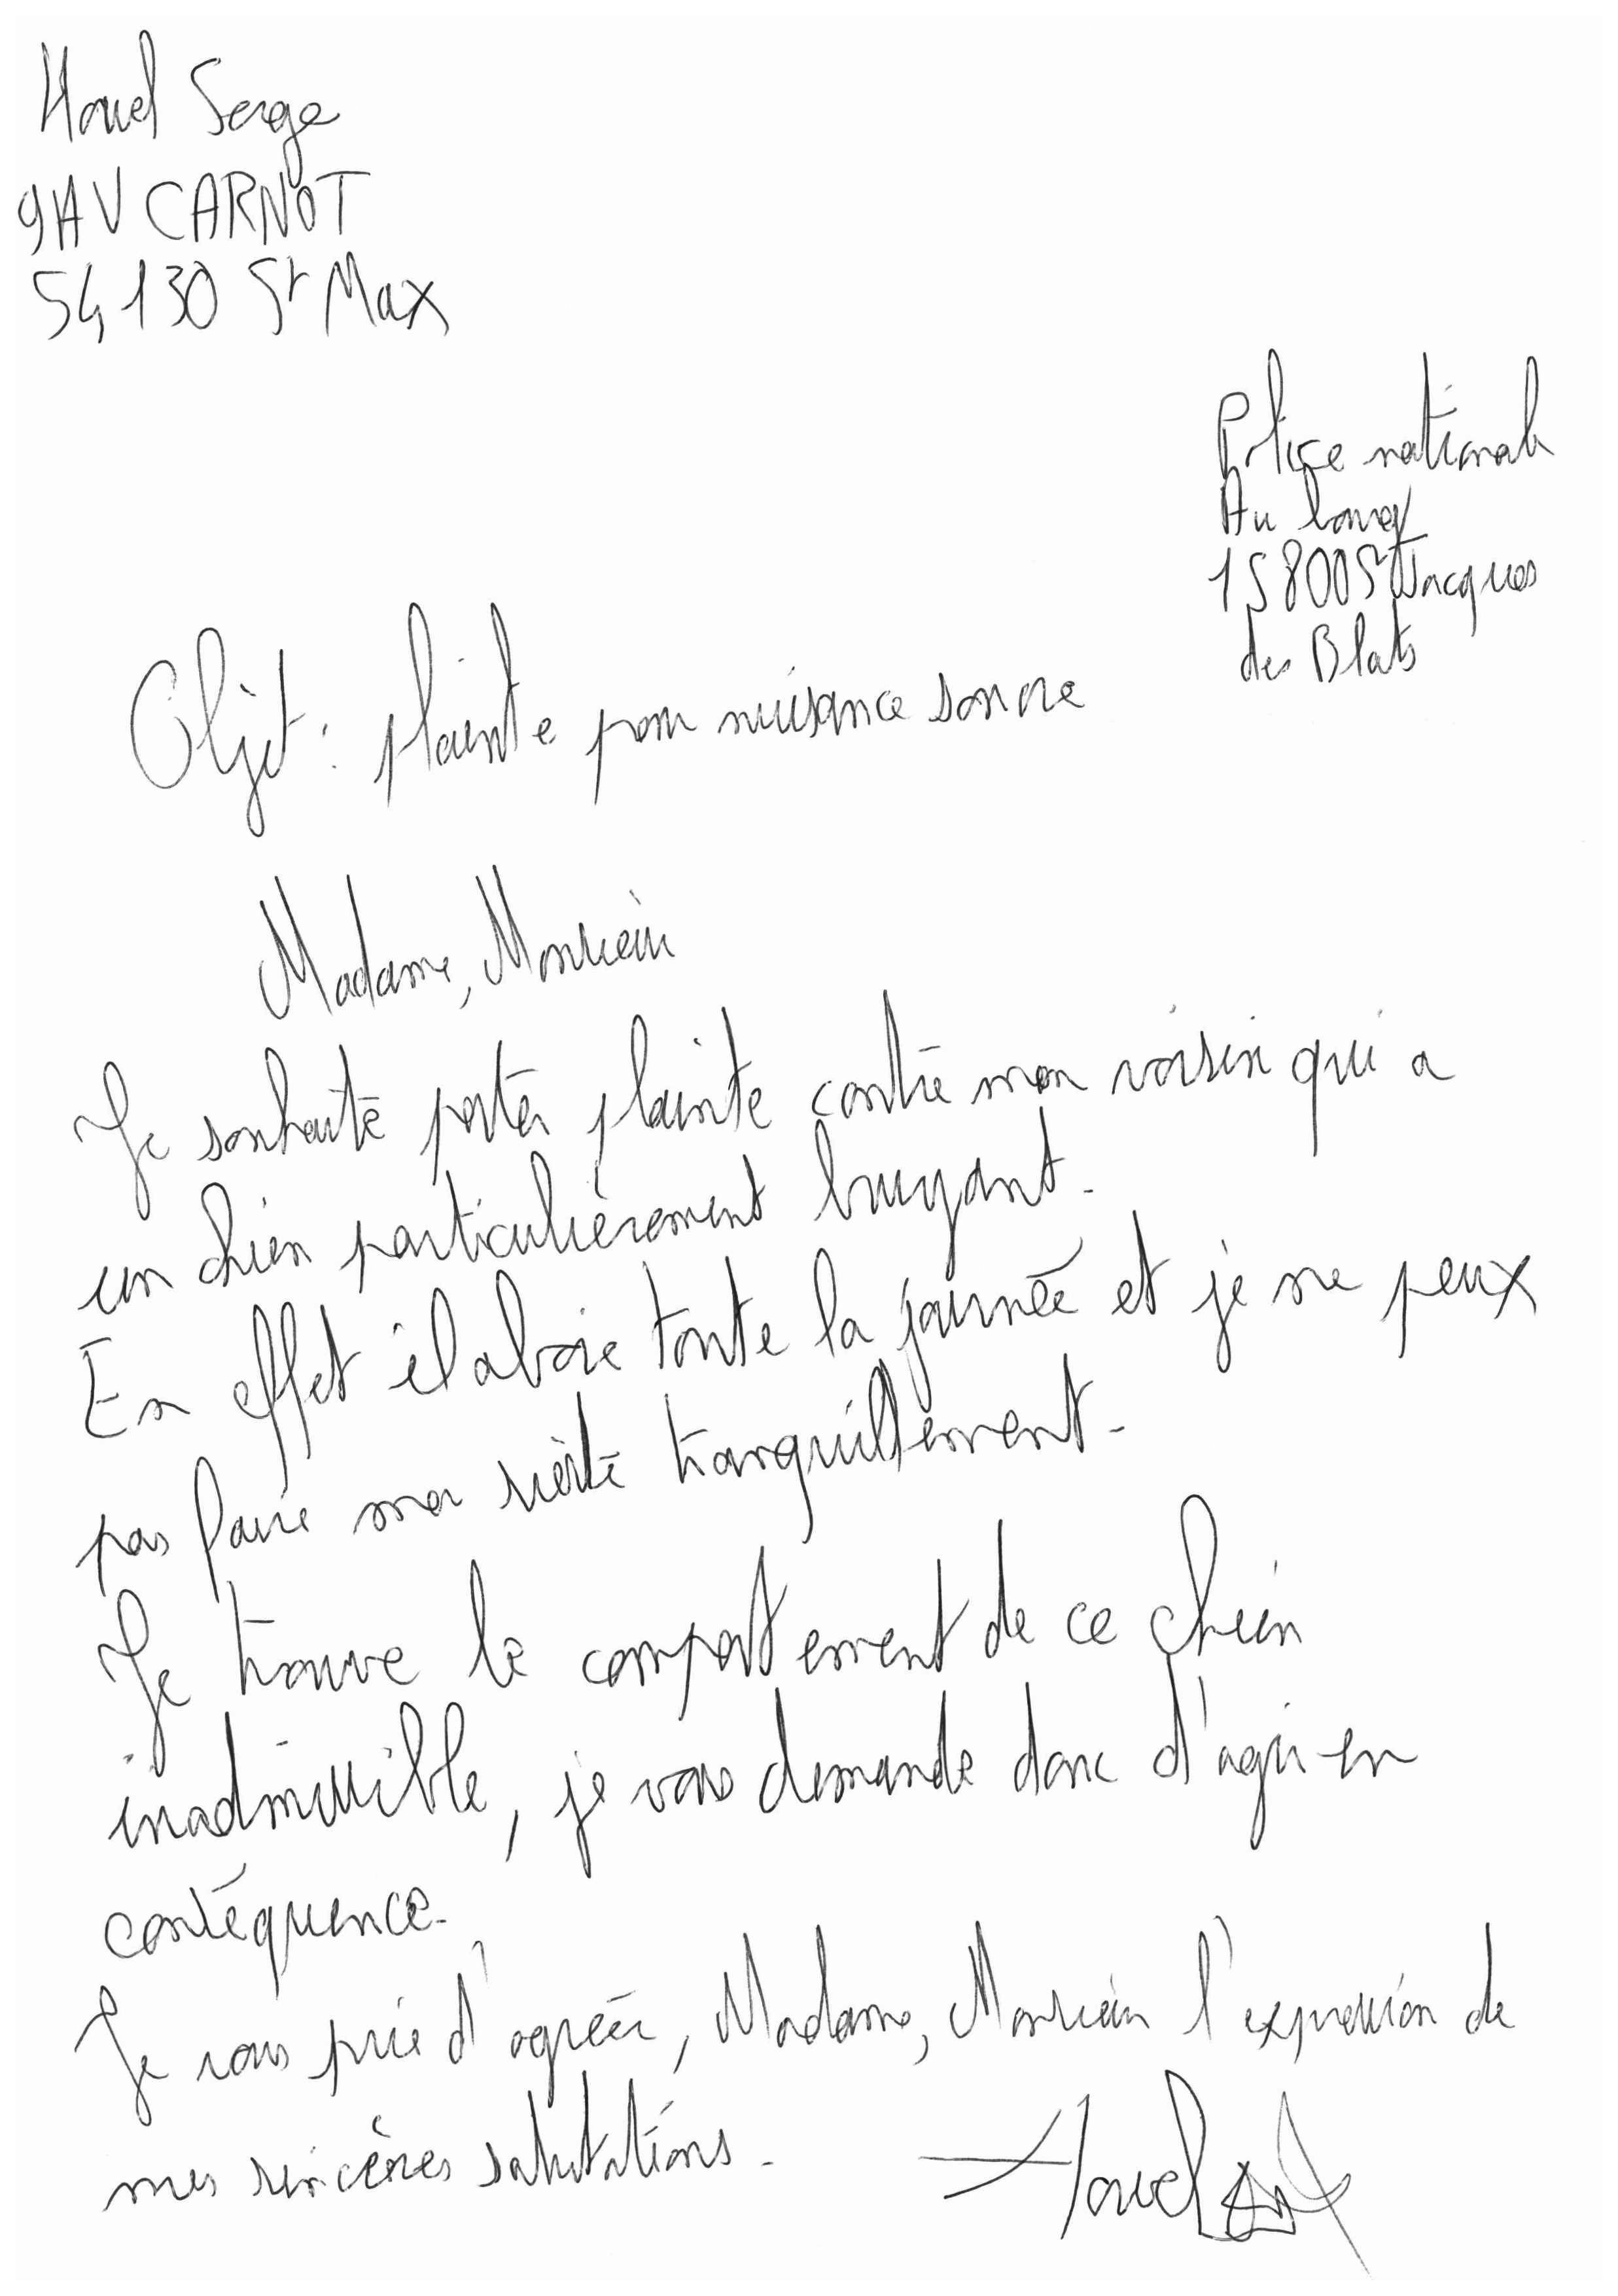 Houel Serge
9 AV CARNOT
54130 St Max
Police nationale
Au bourg
15800 St Jacques
des Blats
Objet : plainte pour nuisance sonore
Madame, Monsieur
Je souhaite porter plainte contre mon voisin qui a
un chien particulièrement bruyant.
En effet il aboie toute la journée et je ne peux
pas faire ma sieste tranquillement.
Je trouve le comportement de ce chien
inadmissible, je vous demande donc d'agir en
conséquence.
Je vous prie d'agréer, Madame, Monsieur l'expression de
mes sincères salutations.
Houel